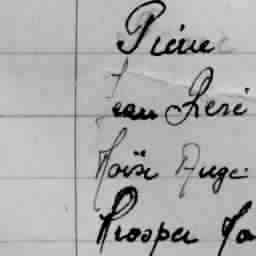 Pierre
Jean René
Moïse Ange
Prosper Jo